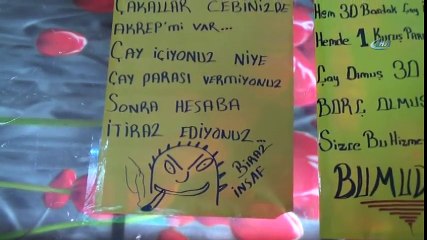 ÇAKALLAR CEBİNİZDE
AKREP'mi VAR...
ÇAY İÇİYONUZ NİYE
ÇAY PARASI VERMİYONUZ
SONRA HESABA
İTİRAZ EDİYONUZ...
BİRAZ
İNSAF
Hem 30 Bardak Çay
Hemde 1 Kuruş PARA
Çay Olmuş 30
BORÇ OLMUŞ
Sizce Bu Hizme
BUMUD